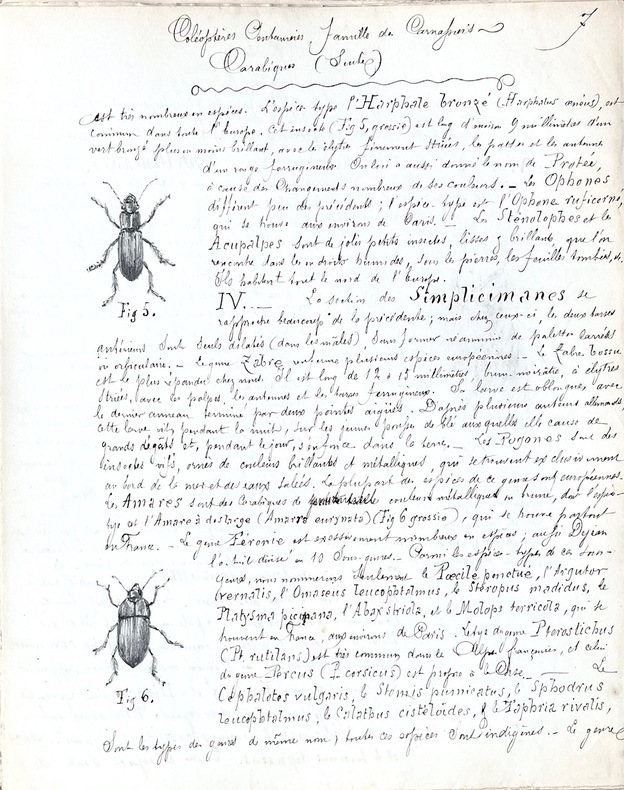 7
Coléoptères Pentamères famille des Carnassiers
Carabiques (Suite)
est très nombreux en espèces. L'espèce type l'Harphale bronzé (Harphalus œnéus), est
commun dans toute l'Europe. Cet insecte (Fig 5, grossie) est long d'environ 9 millimètres d'un
vert bronzé plus ou moins brillant, avec les élytres finement striées, les pattes et les antennes
d'un rouge ferrugineux. On lui a aussi donné le nom de Protée,
à cause des Changements nombreux de ses couleurs. — Les Ophones
diffèrent peu des précédents ; l'espèce type est l'Ophone ruficorne,
qui se trouve aux environs de Paris. — Les Sténolophes et les
Acupalpes sont de jolis petits insectes, lisses & brillants, que l'on
rencontre dans les endroits humides, sous les pierres, les feuilles tombées, etc.
Ils habitent tout le nord de l'Europe.
Fig 5.
IV. — La section des Simplicimanes se
rapproche beaucoup de la précédente ; mais chez ceux-ci, les deux tarses
antérieurs sont seuls dilatés (dans les mâles), sans former néanmoins de palettes carrées
ou orbiculaires. — Le genre Zabre renferme plusieurs espèces européennes. — Le Zabre bossu
est le plus répandu chez nous. Il est long de 12 à 15 millimètres, brun-noirâtre, à élytres
striées, avec les palpes, les antennes et les tarses ferrugineux. Sa larve est oblongue, avec
le dernier anneau terminé par deux pointes aiguës. D'après plusieurs auteurs allemands,
cette larve vit, pendant la nuit, sur les jeunes pousses de blé auxquelles elle cause de
grands dégâts et, pendant le jour, s'enfonce dans la terre. — Les Pogones sont des
insectes vifs, ornés de couleurs brillantes et métalliques, qui se trouvent exclusivement
au bord de la mer et des eaux salées. La plupart des espèces de ce genre sont européennes.
Les Amares sont des Carabiques de couleurs métalliques ou brune, dont l'espèce-
type est l'Amare à dos large (Amara eurynata) (Fig 6 grossie), qui se trouve partout
en France. — Le genre Féronie est excessivement nombreux en espèces ; aussi Dejean
l'a-t-il divisé en 10 Sous-genres. — Parmi les espèces-types de ces Sous-
genres, nous nommerons seulement le Pœcile ponctué, l'Argutor
vernalis, l'Omaseus leucophtalmus, le Steropus madidus, le
Platysma picimana, l'Abax striola, et le Molops terricola, qui se
trouvent en France, aux environs de Paris. Le type du genre Pterostichus
(Pt. rutilans) est très commun dans les Alpes françaises, et celui
du genre Percus (P. corsicus) est propre à la Corse. — Le
Fig 6.
Cephalotes vulgaris, le Stomis pumicatus, le Sphodrus
leucophtalmus, le Calathus cisteloïdes, & le Taphria vivalis,
Sont les types des genres de même nom ; toutes ces espèces sont indigènes. — Le genre